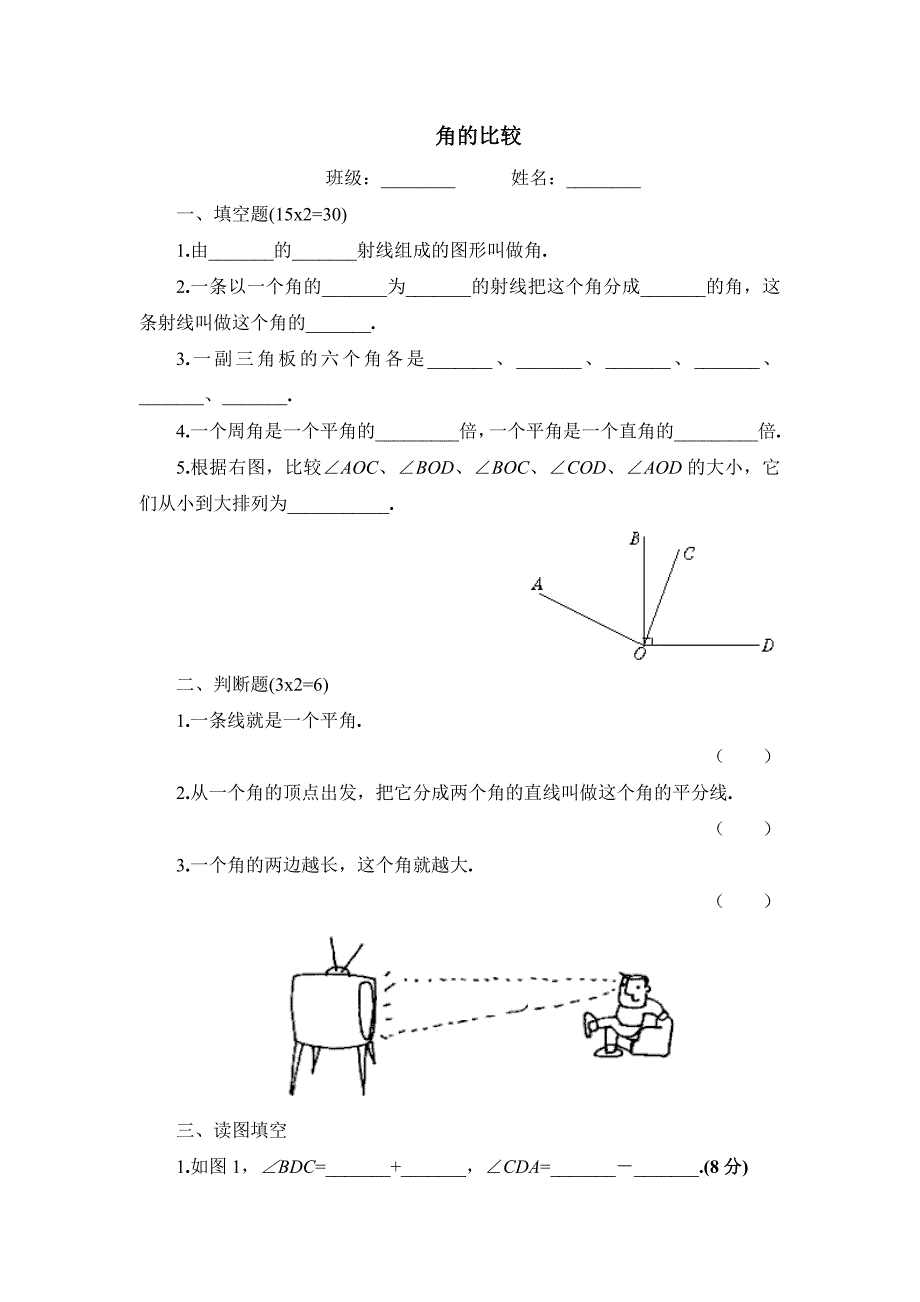 角的比较
班级：________ 姓名：________
一、填空题(15x2=30)
1.由_______的_______射线组成的图形叫做角.
2.一条以一个角的_______为_______的射线把这个角分成_______的角，这
条射线叫做这个角的_______.
3.一副三角板的六个角各是_______、_______、_______、_______、
_______、_______.
4.一个周角是一个平角的_________倍，一个平角是一个直角的_________倍.
5.根据右图，比较∠AOC、∠BOD、∠BOC、∠COD、∠AOD 的大小，它
们从小到大排列为___________.
B
C
A
O
D
二、判断题(3x2=6)
1.一条线就是一个平角.
（ ）
2.从一个角的顶点出发，把它分成两个角的直线叫做这个角的平分线.
（ ）
3.一个角的两边越长，这个角就越大.
（ ）
三、读图填空
1.如图 1，∠BDC=_______+_______，∠CDA=_______－_______.(8 分)